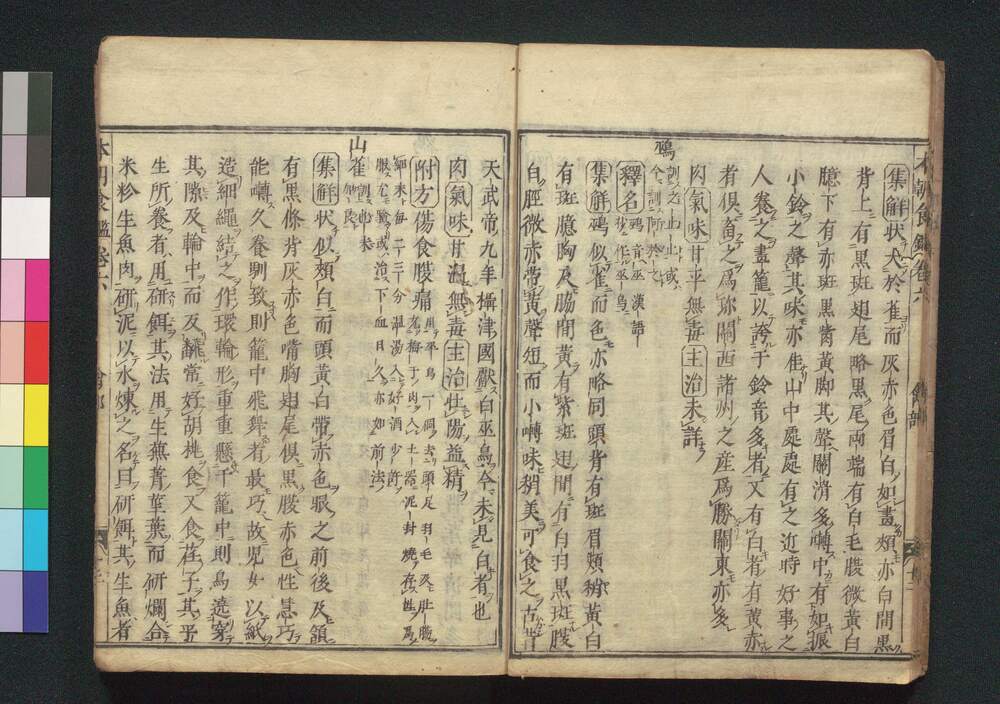 集解狀大於雀而灰赤色眉白如畫頰亦白間黑
背上有黑斑翅尾略黑尾兩端有白毛腹微黃白
臆下有赤斑黑觜黃脚其聲關滑多囀中有如振
小鈴之聲其味亦佳山中處處有之近時好事之
人養之畫籠以誇于鈴音多者又有白者有黃赤
者俱畜之爲弥關西諸州之産爲勝關東亦多
肉氣味甘平無毒主治未詳
鵐
訓之止止或
今訓阿於之
釋名鵐音巫漢語
抄作巫鳥
集解鵐似雀而色亦略同頭背有斑眉頰稍黃白
有斑臆胸及脇間黃有紫斑翅間有白羽黑斑腹
白脛微赤帶黃聲短而小囀味稍美可食之古昔
天武帝九年攝津國獻白巫鳥今未見白者也
肉氣味甘溫無毒主治壯陽益精
附方傷食腹痛
山雀
集解狀似頰白而頭黃白帶赤色眼之前後及頷
有黑條背灰赤色嘴胸翅尾俱黑腹赤色性慧巧
能囀久養馴致則籠中飛舞者最巧故兒女以紙
造細繩結之作環輪形重重懸于籠中則鳥遶穿
其隙及輪中而反飜常好胡桃食又食荏子其平
生所養者用研餌其法用生蕪菁葉葉而研爛合
米粉生魚肉研泥以水煉之名曰研餌其生魚者
本朝食鑑卷六